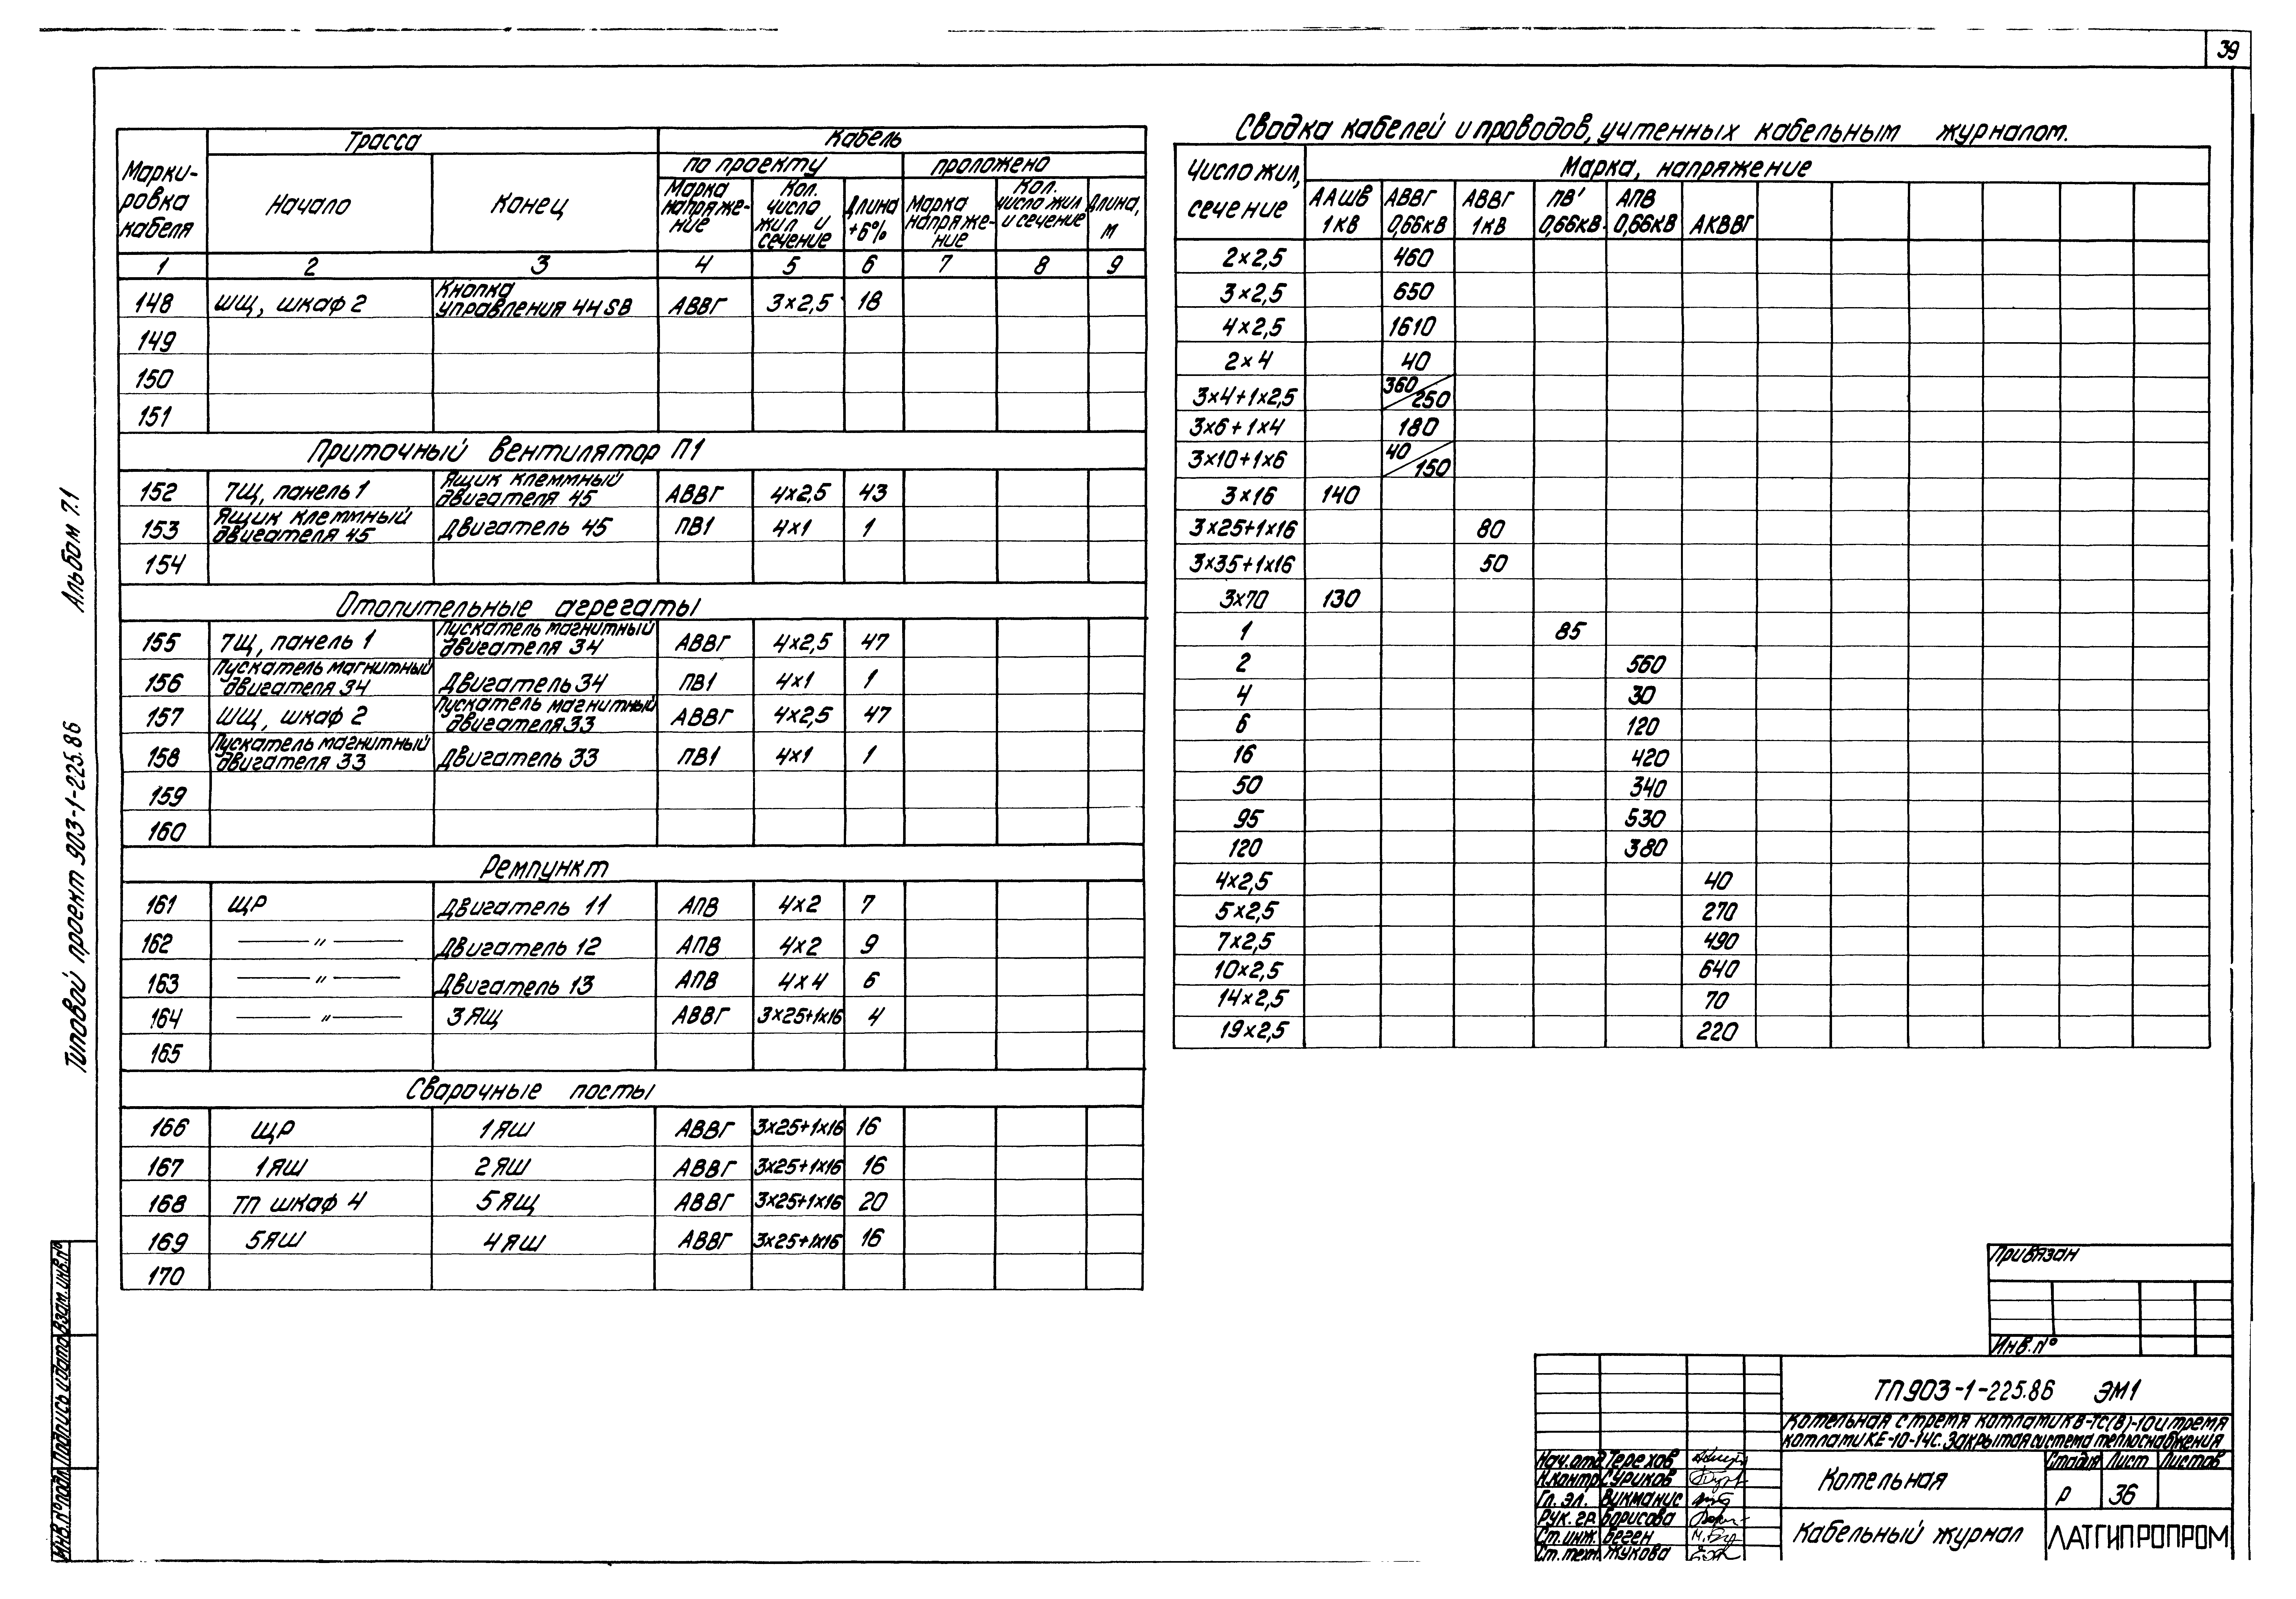 39
Альбом 7.1
Типовой проект 903-1-225.86
Инв.№ подл. Подпись и дата Взам.инв.№
Марки-
ровка
кабеля
Трасса
Кабель
Начало
Конец
по проекту
проложено
Марка
напряже-
ние
Кол.
число
жил и
сечение
Длина
+6%
Марка
напряже-
ние
Кол.
число жил
и сечение
Длина,
м
1 2 3 4 5 6 7 8 9
148 ШЩ, шкаф 2 Кнопка управления 44SB АВВГ 3×2,5 18
149
150
151
Приточный вентилятор П1
152 7Щ, панель 1 Ящик клеммный двигателя 45 АВВГ 4×2,5 43
153 Ящик клеммный двигателя 45 Двигатель 45 ПВ1 4×1 1
154
Отопительные агрегаты
155 7Щ, панель 1 Пускатель магнитный двигателя 34 АВВГ 4×2,5 47
156 Пускатель магнитный двигателя 34 Двигатель 34 ПВ1 4×1 1
157 ШЩ, шкаф 2 Пускатель магнитный двигателя 33 АВВГ 4×2,5 47
158 Пускатель магнитный двигателя 33 Двигатель 33 ПВ1 4×1 1
159
160
Ремпункт
161 ЩР Двигатель 11 АПВ 4×2 7
162 — " — Двигатель 12 АПВ 4×2 9
163 — " — Двигатель 13 АПВ 4×4 6
164 — " — 3 ЯЩ АВВГ 3×25+1×16 4
165
Сварочные посты
166 ЩР 1 ЯШ АВВГ 3×25+1×16 16
167 1 ЯШ 2 ЯШ АВВГ 3×25+1×16 16
168 ТП шкаф 4 5 ЯЩ АВВГ 3×25+1×16 20
169 5 ЯШ 4 ЯШ АВВГ 3×25+1×16 16
170
Сводка кабелей и проводов, учтенных кабельным журналом.
Число жил,
сечение
Марка, напряжение
ААШВ
1КВ
АВВГ
0,66КВ
АВВГ
1КВ
ПВ'
0,66КВ
АПВ
0,66КВ
АКВВГ
2×2,5 460
3×2,5 650
4×2,5 1610
2×4 40
3×4+1×2,5 360/250
3×6+1×4 180
3×10+1×6 40/150
3×16 140
3×25+1×16 80
3×35+1×16 50
3×70 130
1 85
2 560
4 30
6 120
16 420
50 340
95 530
120 380
4×2,5 40
5×2,5 270
7×2,5 490
10×2,5 640
14×2,5 70
19×2,5 220
Привязан
Инв.№
ТП903-1-225.86 ЭМ1
Котельная с тремя котлами КВ-ТС(В)-10 и тремя
котлами КЕ-10-14С. Закрытая система теплоснабжения
Нач.отд Терехов
Н.контр Суриков
Гл. эл. Вукманис
Рук. гр. Борисова
Ст. инж. Беген
Ст. тех. Жукова
Котельная
Стадия Лист Листов
Р 36
Кабельный журнал
ЛАТГИПРОПРОМ